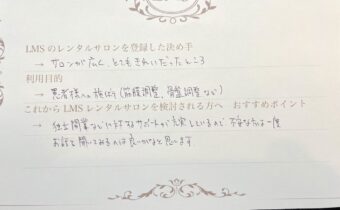 LMSのレンタルサロンを登録した決め手
→ サロンが広く、とてもきれいだったところ
利用目的
→ 患者様への施術(筋膜調整、骨盤調整など)
これからLMSレンタルサロンを検討される方へ おすすめポイント
→ 独立開業などに対するサポートが充実しているので 不安な方は一度
お話を聞いてみるのは良いかなと思います